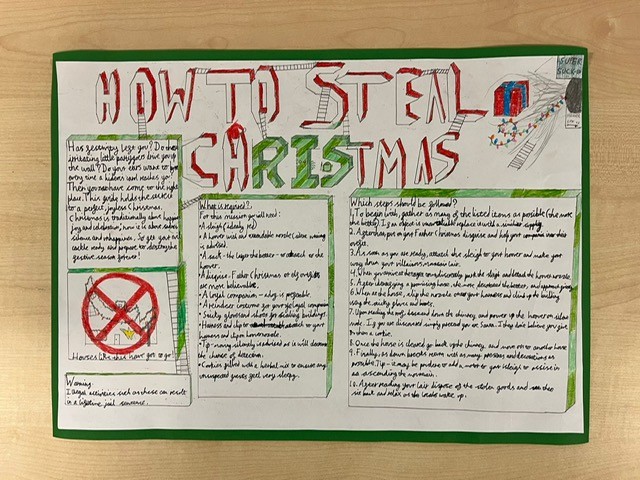 HOW TO STEAL
CHRISTMAS
SUPER
SUCK
Has festivity left you? Do these
irritating little partygoers drive you up
the wall? Do your ears want to
every time a hideous carol reaches you?
Then you have come to the right
place. This guide holds the secrets
to a perfect, joyless Christmas.
Christmas is traditionally about happiness
joy and celebration, now it is about sadness
silence and unhappiness. To get your
ready and prepare to destroy the
festive season forever!
Houses like this have got to go
Warning:
Illegal activities such as these can result
in a lifetime jail sentence.
What is required?
For this mission you will need:
A sleigh (ideally red)
A hover well and extendable nozzle
is advised.
A sack - the larger the better - to attach to the
hoover.
A disguise - Father Christmas or elf outfits
are most believable.
A loyal companion - a dog is preferable
A reindeer costume for your loyal companion
Suity gloves and shoes for scaling buildings.
Harness and clip to attach to your
humans and clip on nozzle.
Tip - many silently is advised as it will decrease
the chance of detection.
Cookies filled with a herbal mix to ensure any
unexpected guests feel very sleepy.
Which steps should be followed?
1. To begin with, gather as many of the listed items as possible (the more
the better). If an object is unavailable replace it with a similar
2. After that, put on your Father Christmas disguise and help your companion into their
3. As soon as you are ready, attach the sleigh to your honour and make your
way down your villainous mountain lair.
4. When you arrive
5. After identifying a promising house, the more decorated the better,
6. When at the house, clip the nozzle onto your harness and climb up the building
using the suity gloves and boots.
7. Upon reaching the roof, lean down the chimney, and power up the hoover on slow
mode. If you are discovered simply pretend you are Santa. If they don't believe you give
them a cookie.
8. Once the house is cleared go back up the chimney, and move on to another house
9. Finally, as dawn breaks return with as many presents and decorations as
possible. Tip - it may be prudent to add a motor to your sleigh to assist in
ascending the mountain.
10. After reaching your lair dispose of the stolen goods and then
sit back and relax as the locals wake up.